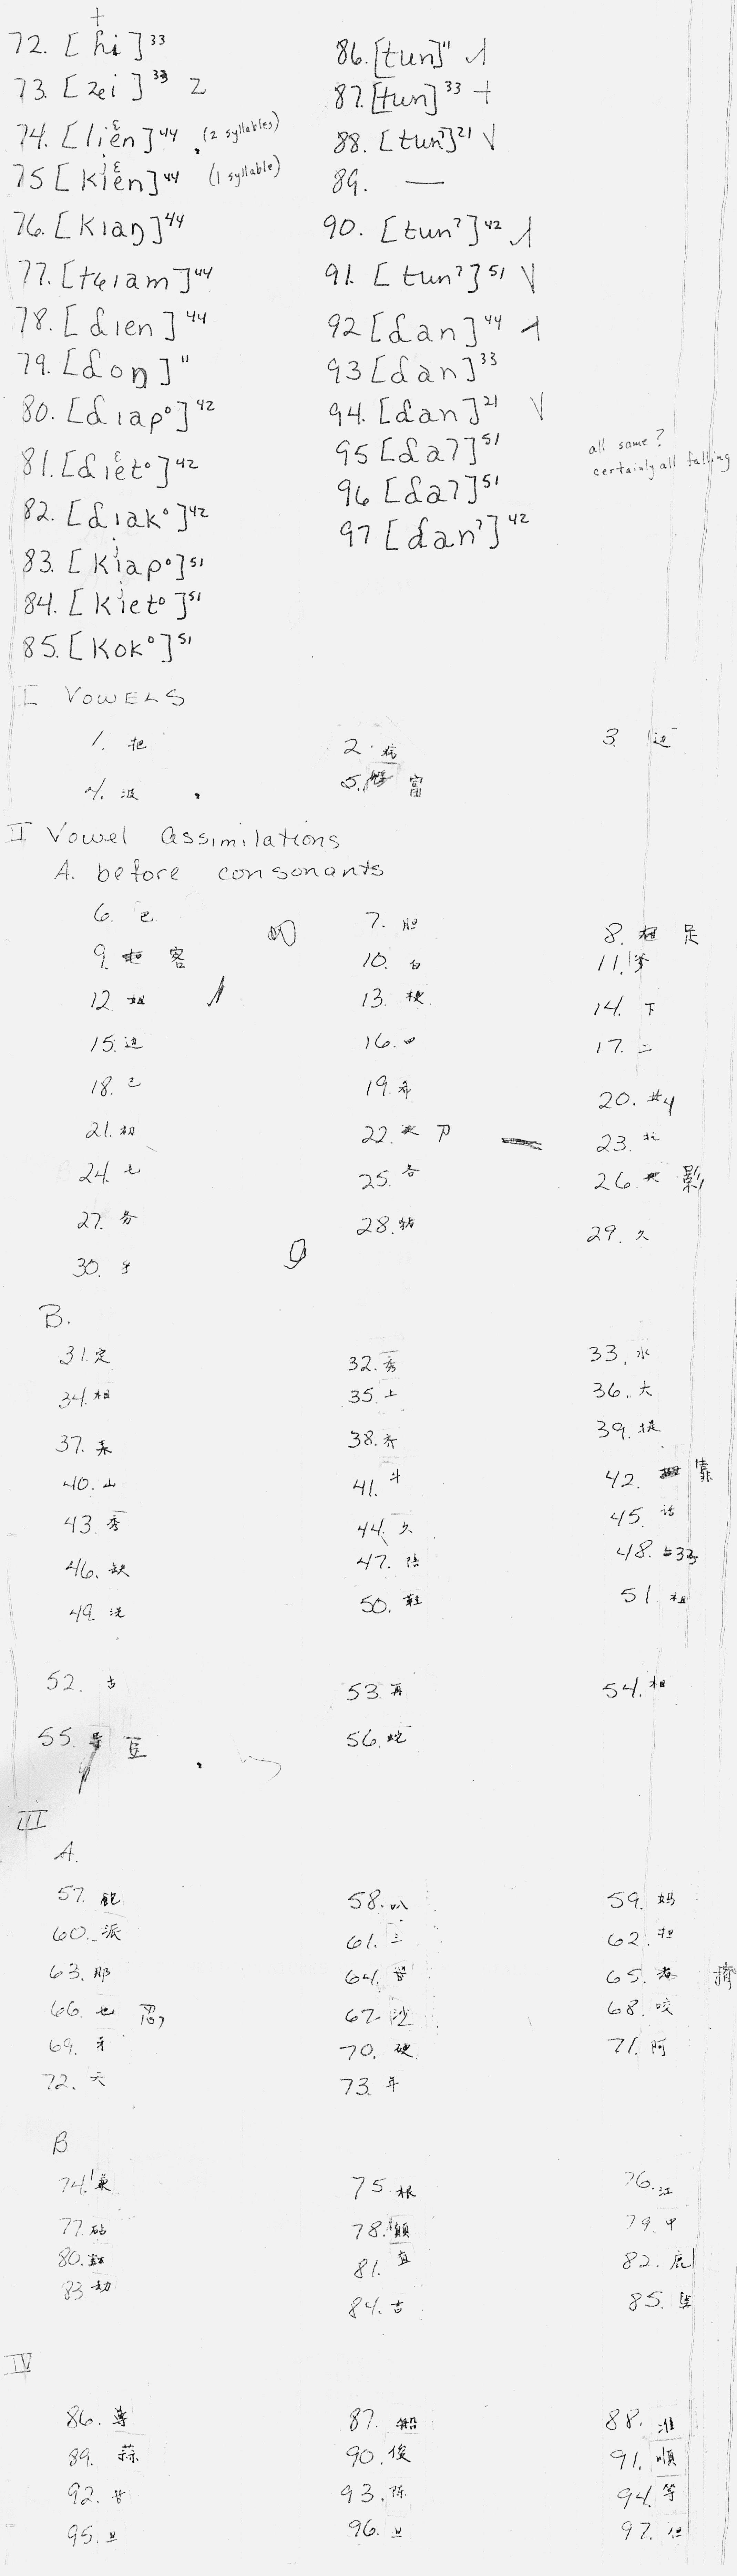 72. [hi]³³
73. [zei]³³
74. [liɛn]⁴⁴ (2 syllables)
75 [kʲiɛn]⁴⁴ (1 syllable)
76. [kiaŋ]⁴⁴
77. [tɕiam]⁴⁴
78. [dien]⁴⁴
79. [doŋ]¹¹
80. [diap°]⁴²
81. [diɛt°]⁴²
82. [diak°]⁴²
83. [kʲiap°]⁵¹
84. [kʲiet°]⁵¹
85. [kok°]⁵¹
86. [tun]¹¹
87. [tun]³³ +
88. [tunˀ]²¹ V
89. —
90. [tunˀ]⁴²
91. [tunˀ]⁵¹ V
92 [dan]⁴⁴
93 [dan]³³
94. [dan]²¹ V
95 [daʔ]⁵¹
96 [daʔ]⁵¹
97 [danˀ]⁴²
all same?
certainly all falling
I VOWELS
1. 把 2. 病 3. 边
4. 波 5. 富
II Vowel Assimilations
A. before consonants
6. 己 7. 胆 8. 足
9. 客 10. 白 11. 爹
12. 姐 13. 梗 14. 下
15. 边 16. 四 17. 二
18. 己 19. 希 20. #4
21. 初 22. 刀 23.
24. 七 25. 各 26. 影
27. 28. 猪 29. 久
30. 手
B.
31. 定 32. 秀 33. 水
34. 相 35. 上 36. 大
37. 38. 39. 提
40. 山 41. 斗 42. 靠
43. 秀 44. 久 45. 话
46. 缺 47. 陪 48. 33
49. 洗 50. 鞋 51. 祖
52. 古 53. 再 54. 相
55. 豆 56. 蛇
III
A.
57. 飽 58. 叭 59. 妈
60. 派 61. 三 62. 担
63. 那 64. 65. 擠
66. 67. 沙 68. 咬
69. 牙 70. 硬 71. 阿
72. 天 73. 年
B
74. 兼 75. 根 76. 江
77. 砧 78. 顛 79. 中
80. 81. 直 82. 鹿
83. 劫 84. 吉 85.
IV
86. 尊 87. 船 88. 准
89. 蒜 90. 俊 91. 順
92. 93. 陈 94. 等
95. 旦 96. 旦 97. 但